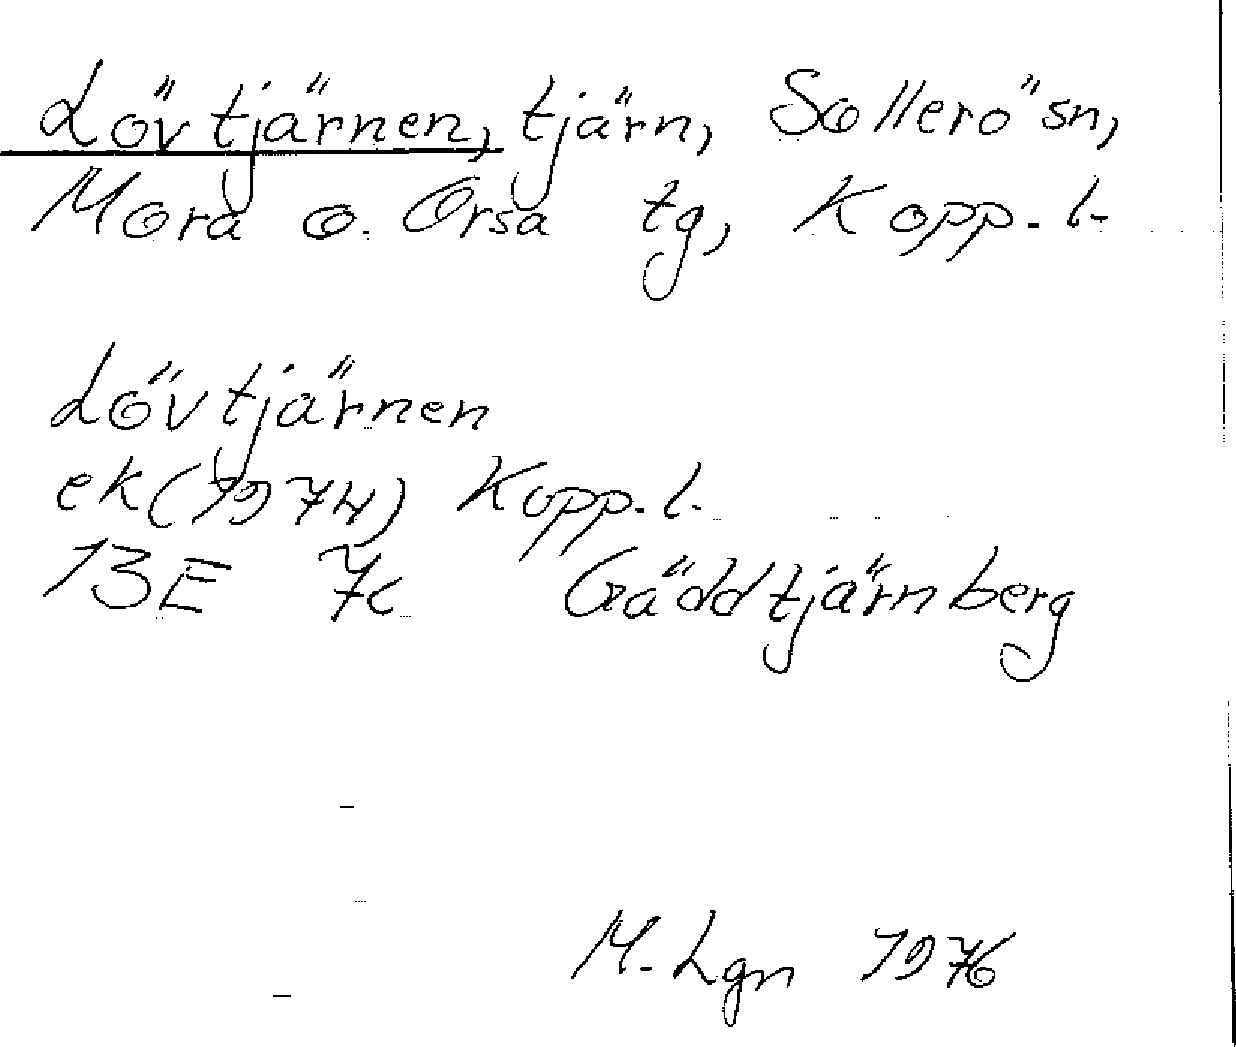 Lövtjärnen, tjärn, Sollerö sn,
Mora o. Orsa tg, Kopp. l.
Lövtjärnen
ek (1974) Kopp. l.
13E 7c Gäddtjärnberg
M. Lgn 1976